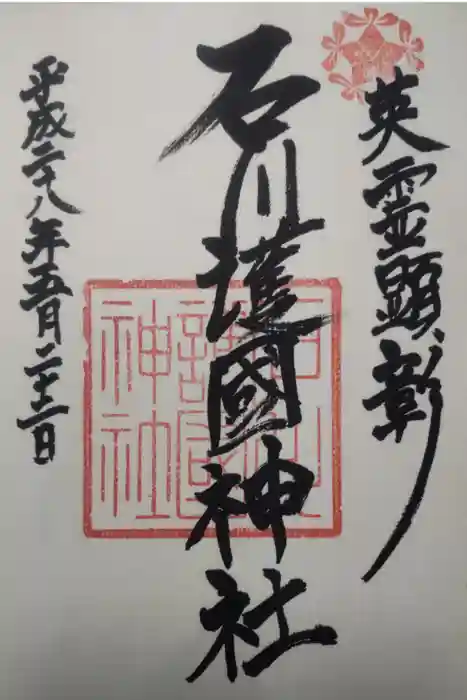 英霊顕彰
石川護國神社
平成二十八年五月二十二日
石川護國神社